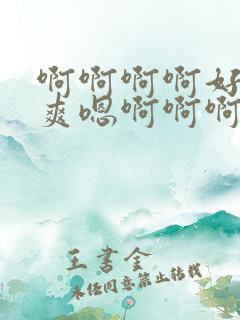 啊啊啊啊好
爽嗯啊啊啊
王书金
未经同意禁止转载